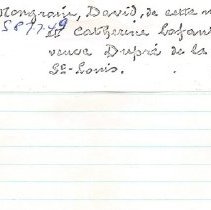 Mongrain, David, de cette
587749 et Catherine Lafont
veuve Dupré de la
St-Louis.